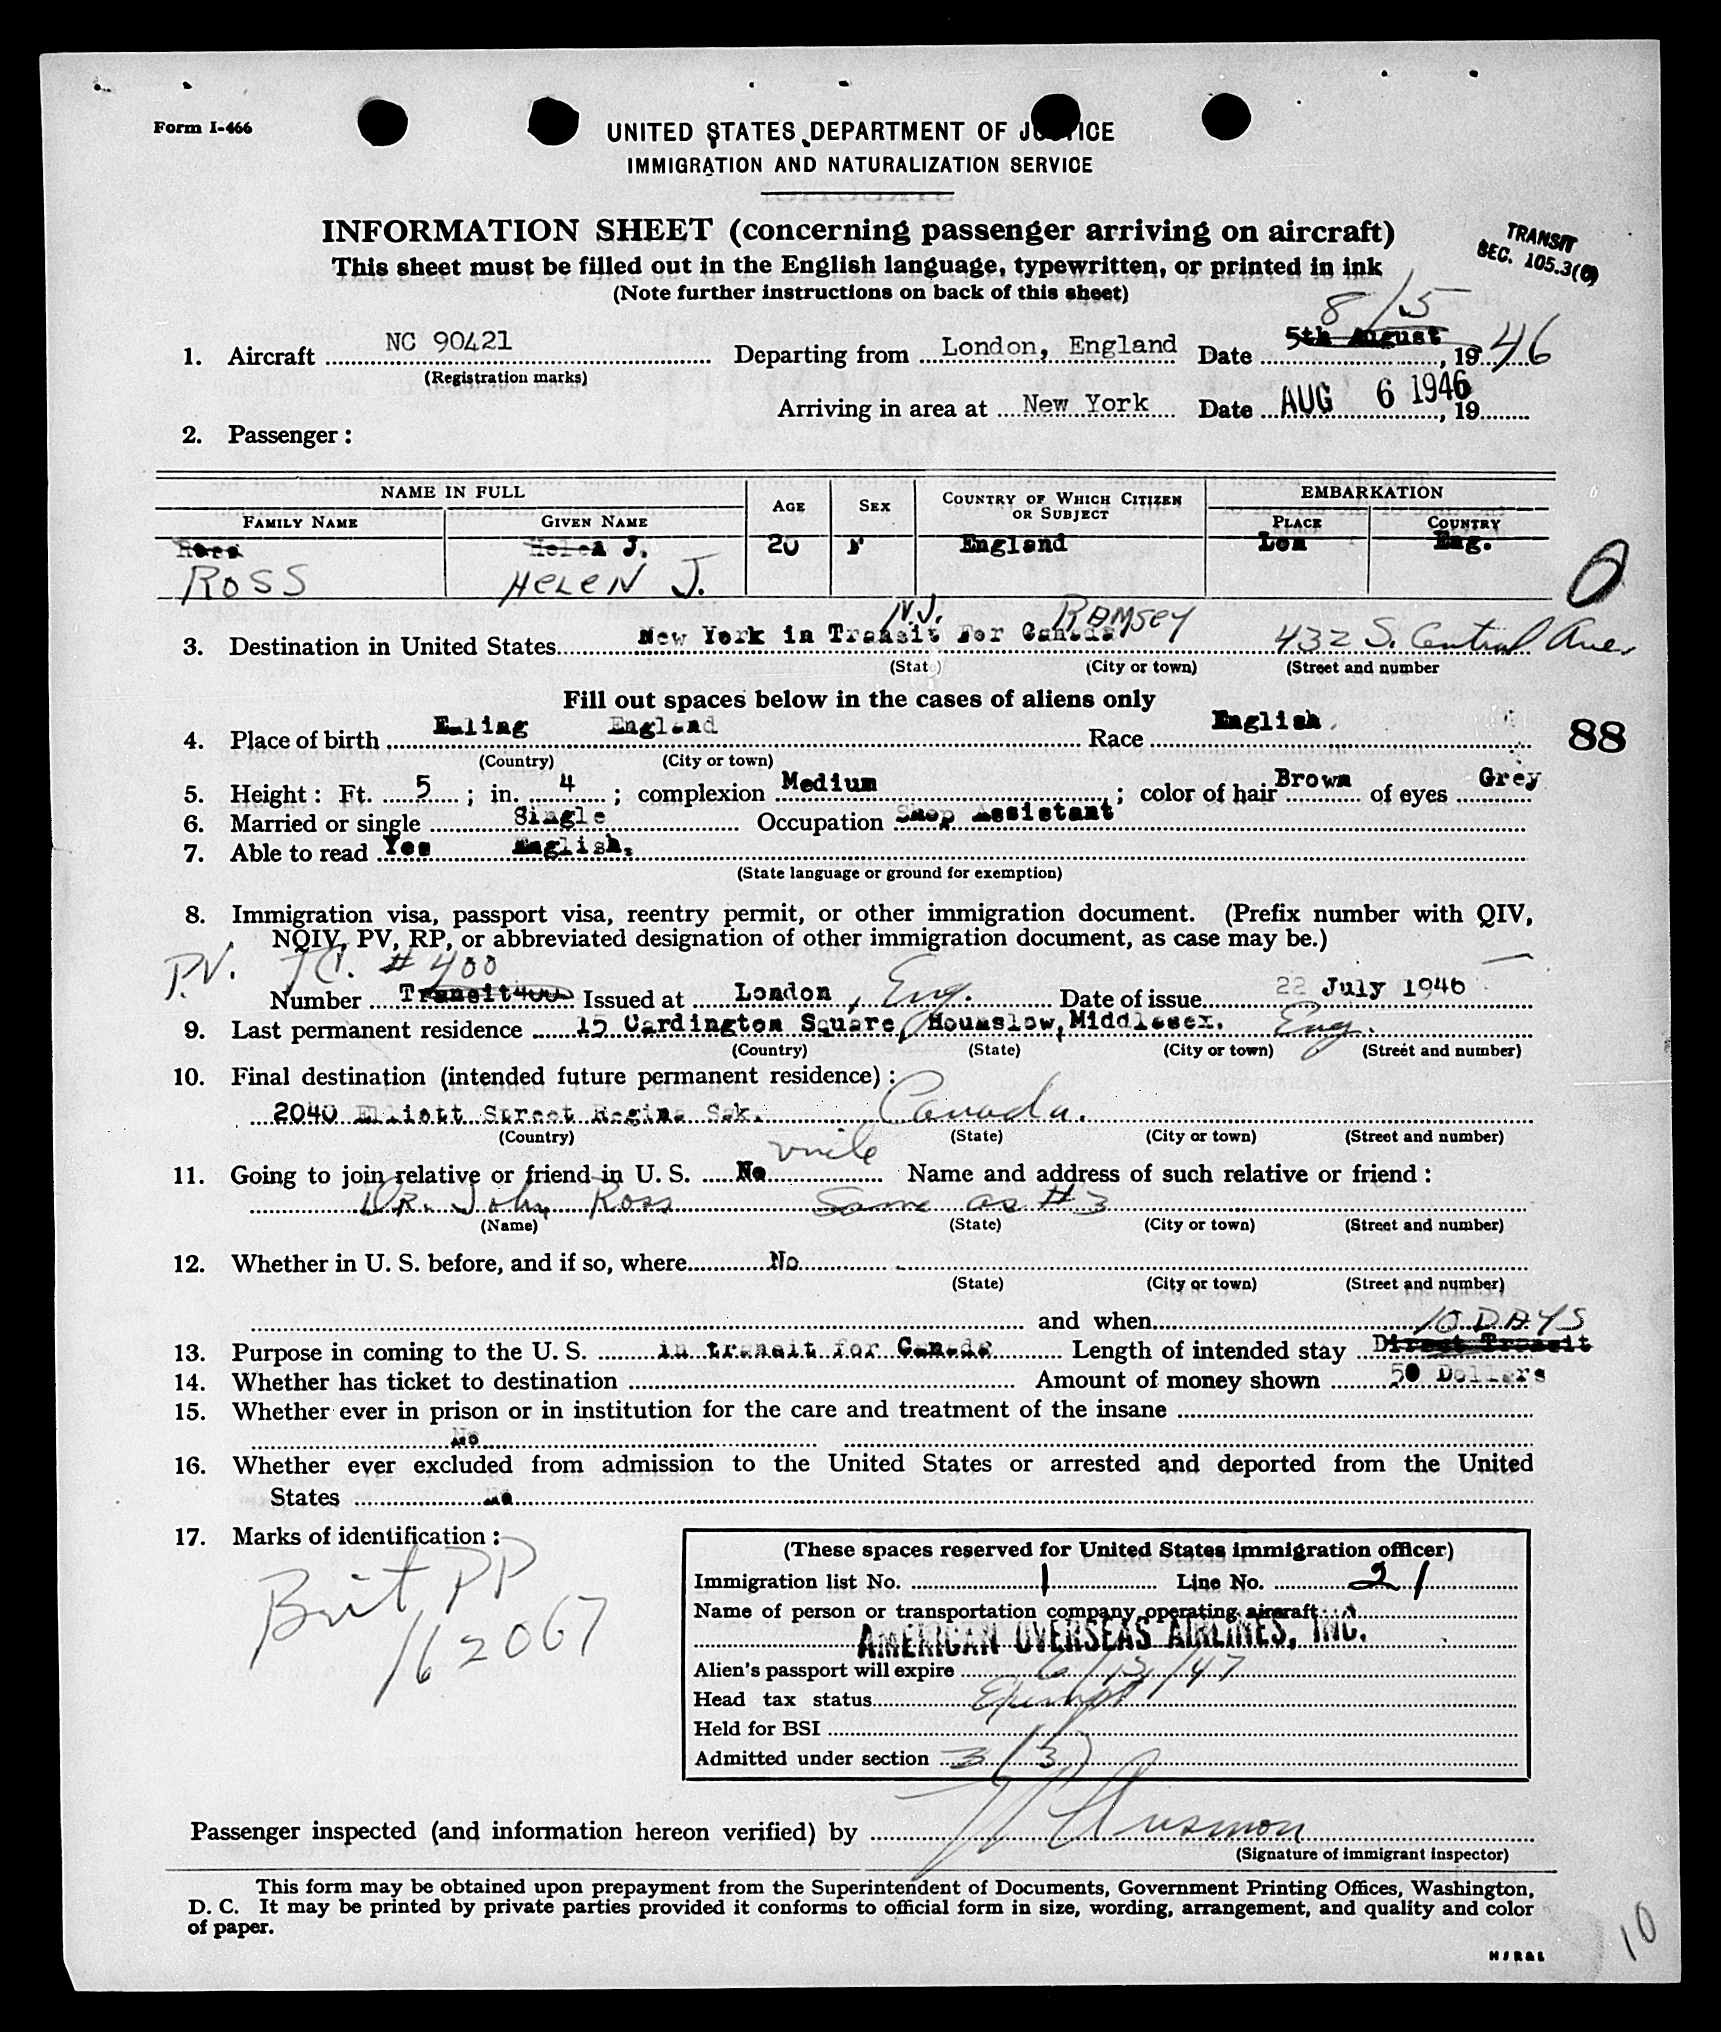 Form I-466
UNITED STATES DEPARTMENT OF JUSTICE
IMMIGRATION AND NATURALIZATION SERVICE
INFORMATION SHEET (concerning passenger arriving on aircraft)
TRANSIT
SEC. 105.3(
This sheet must be filled out in the English language, typewritten, or printed in ink
(Note further instructions on back of this sheet)
8/5
1. Aircraft NC 90421 Departing from London, England Date 5th August, 1946
(Registration marks)
Arriving in area at New York Date AUG 6 1946, 19
2. Passenger:
NAME IN FULL AGE SEX COUNTRY OF WHICH CITIZEN OR SUBJECT EMBARKATION
FAMILY NAME GIVEN NAME PLACE COUNTRY
Ross Helen J. 20 F England Lon Eng.
ROSS HELEN J.
N.J. RAMSEY
3. Destination in United States New York in Transit For Canada 432 S. Central Ave.
(State) (City or town) (Street and number
Fill out spaces below in the cases of aliens only
4. Place of birth Ealing England Race English. 88
(Country) (City or town)
5. Height: Ft. 5; in. 4; complexion Medium; color of hair Brown of eyes Grey
6. Married or single Single Occupation Shop Assistant
7. Able to read Yes English.
(State language or ground for exemption)
8. Immigration visa, passport visa, reentry permit, or other immigration document. (Prefix number with QIV,
NQIV, PV, RP, or abbreviated designation of other immigration document, as case may be.)
P.V. # 400
Number Transit 400 Issued at London, Eng. Date of issue 22 July 1946
9. Last permanent residence 15 Cardington Square, Hounslow, Middlesex. Eng.
(Country) (State) (City or town) (Street and number)
10. Final destination (intended future permanent residence):
2040 Elliott Street Regina Sak. Canada.
(Country) (State) (City or town) (Street and number)
uncle
11. Going to join relative or friend in U. S. No Name and address of such relative or friend:
DR. John Ross Same as #3
(Name) (State) (City or town) (Street and number)
12. Whether in U. S. before, and if so, where No
(State) (City or town) (Street and number)
and when
10 DAYS
13. Purpose in coming to the U. S. in transit for Canada Length of intended stay Direct Transit
14. Whether has ticket to destination Amount of money shown 50 Dollars
15. Whether ever in prison or in institution for the care and treatment of the insane
No
16. Whether ever excluded from admission to the United States or arrested and deported from the United
States No
17. Marks of identification:
Brit PP
162067
(These spaces reserved for United States immigration officer)
Immigration list No. 1 Line No. 21
Name of person or transportation company operating aircraft
AMERICAN OVERSEAS AIRLINES, INC.
Alien's passport will expire 6/13/47
Head tax status Exempt
Held for BSI
Admitted under section 3/3)
Passenger inspected (and information hereon verified) by
(Signature of immigrant inspector)
This form may be obtained upon prepayment from the Superintendent of Documents, Government Printing Offices, Washington,
D. C. It may be printed by private parties provided it conforms to official form in size, wording, arrangement, and quality and color
of paper.
10